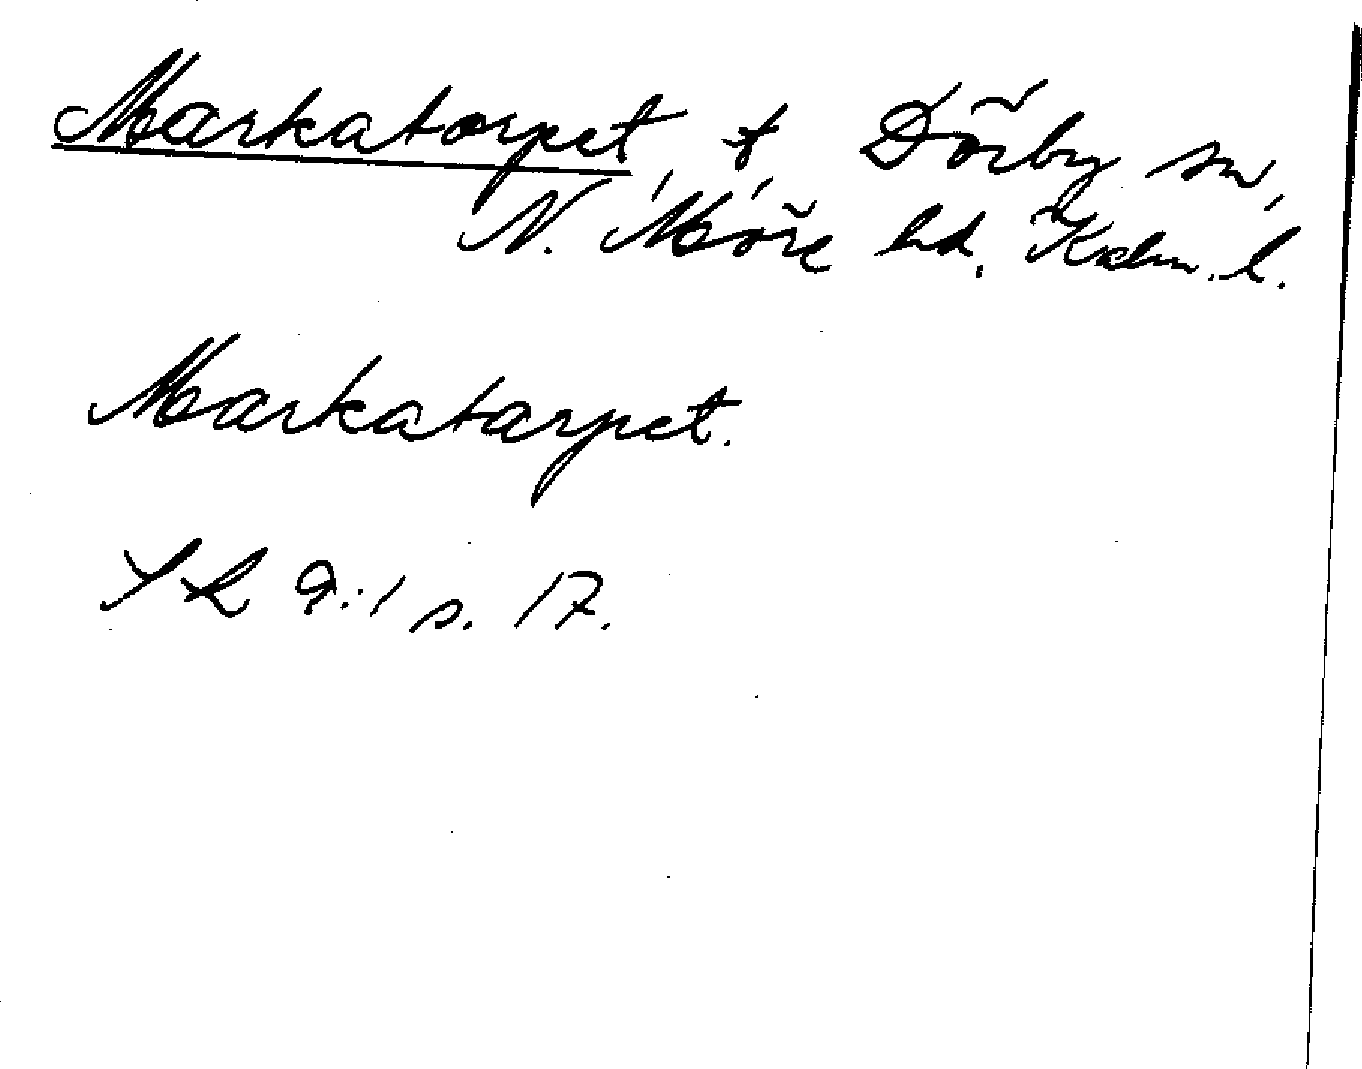 Markatorpet, t, Dörby sn,
N. Möre hd, Kalm. l.
Markatorpet.
SR 9:1 s. 17.